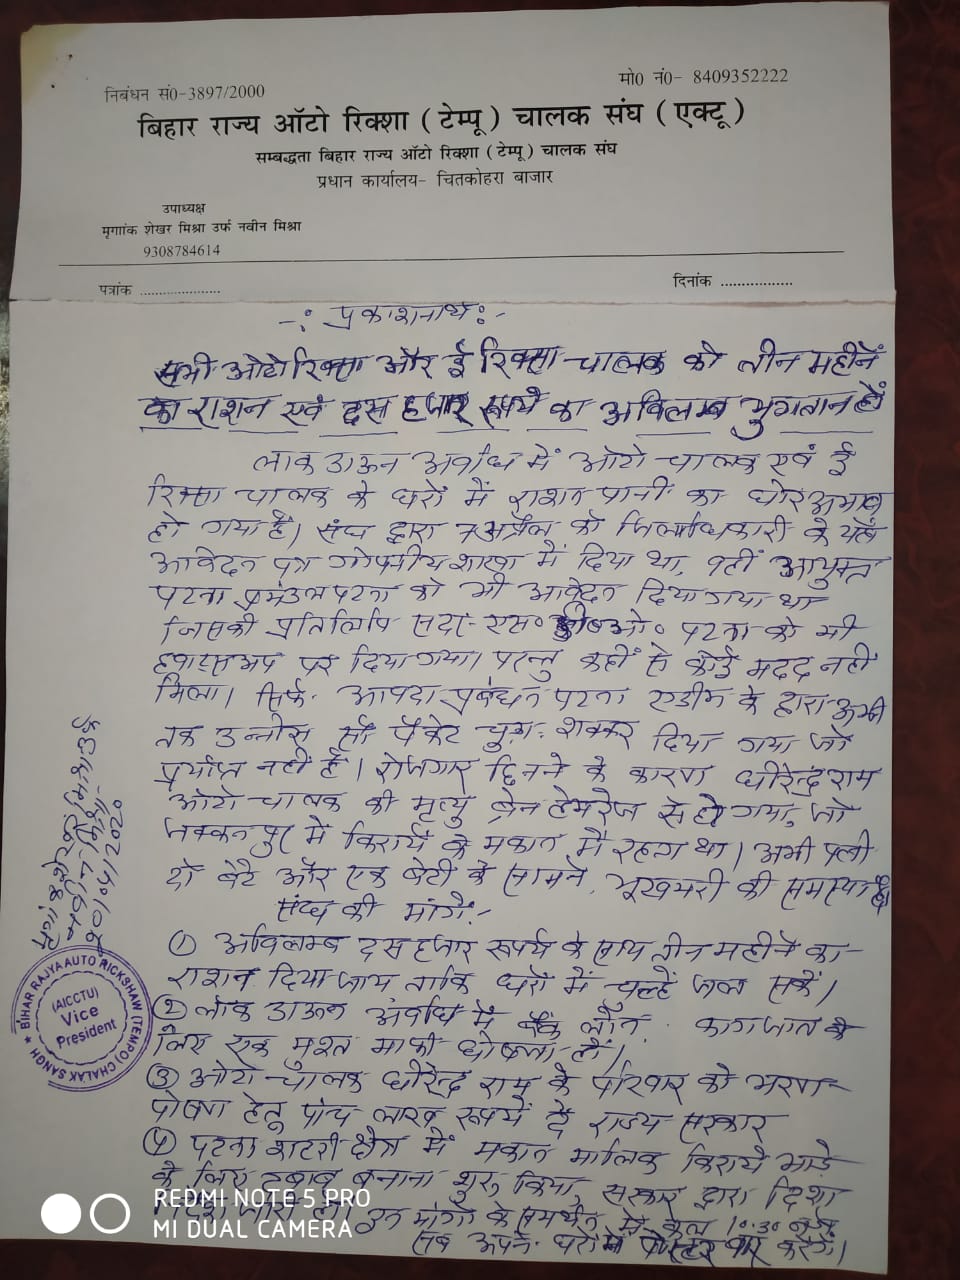 निबंधन सं0-3897/2000
मो0 नं0- 8409352222
बिहार राज्य ऑटो रिक्शा ( टेम्पू ) चालक संघ ( एक्टू )
सम्बद्धता बिहार राज्य ऑटो रिक्शा ( टेम्पू ) चालक संघ
प्रधान कार्यालय- चितकोहरा बाजार
उपाध्यक्ष
मृगांाक शेखर मिश्रा उर्फ नवीन मिश्रा
9308784614
पत्रांक .....................
दिनांक ..................
-: प्रकाशनार्थ :-
सभी ओटो रिक्सा और ई रिक्सा चालक को तीन महीनें
का राशन एवं दस हजार रूपये का अविलम्ब भुगतान हो
लाक डाऊन अवधि में ऑटो चालक एवं ई
रिक्सा चालक के घरों में राशन पानी का घोर अभाव
हो गया है। संघ द्वारा 7 अप्रैल को जिलाधिकारी के यहाँ
आवेदन पत्र गोपनीय शाखा में दिया था, वहीं आयुक्त
पटना प्रमंडल पटना को भी आवेदन दिया गया था
जिसकी प्रतिलिपि सदर एस॰ डी॰ओ॰ पटना को भी
हवाटसअप पर दिया गया। परन्तु कहीं से कोई मदद नहीं
मिला। सिर्फ आपदा प्रबंधन पटना एडीम के द्वारा अभी
तक उन्नीस सौ पैकेट चुड़ा शक्कर दिया गया जो
प्रर्याप्त नहीं है। रोजगार छिनने के कारण धीरेन्द्र राम
ओटो चालक की मृत्यु ब्रेन हेमरेज से हो गया, जो
जक्कनपुर में किराये के मकान में रहता था। अभी पत्नी
दो बेटे और एक बेटी के सामने भूखमरी की समस्या है।
संघ की मांगें:-
① अविलम्ब दस हजार रूपये के साथ तीन महीने का
राशन दिया जाय ताकि घरों में चुल्हें जल सकें।
② लॉक डाऊन अवधि में बैंक लोन कागजात के
लिए एक मुश्त माफी घोषणा हो।
③ ओटो चालक धीरेन्द्र राम के परिवार को भरण
पोषण हेतू पांच लाख रूपये दे राज्य सरकार
④ पटना शहरी क्षेत्र में मकान मालिक किराये भाड़े
के लिए दबाव बनाना शुरू किया, सरकार द्वारा दिशा
जारी हो। उन मांगों के समर्थन में कल 10:30 बजे
सब अपने घरों में करेंगे।
मृगांक शेखर मिश्रा उर्फ
नवीन मिश्रा
20/04/2020
BIHAR RAJYA AUTO RICKSHAW (TEMPO) CHALAK SANGH
(AICCTU)
Vice
President
REDMI NOTE 5 PRO
MI DUAL CAMERA